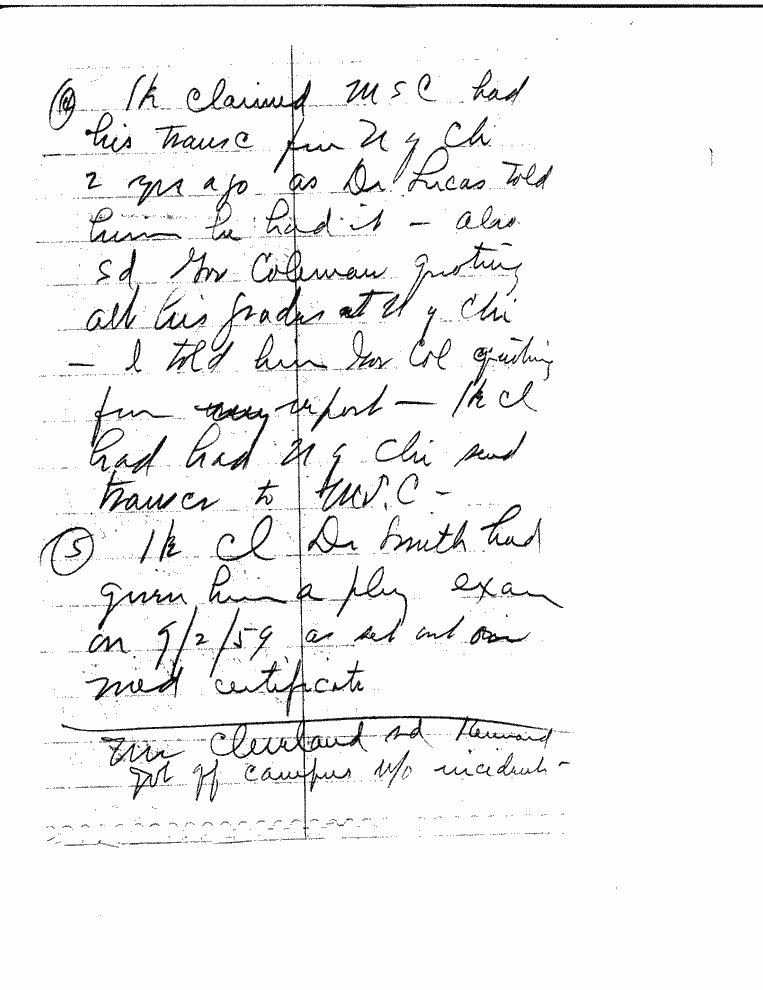 ④ 1k claimed MSC had
his transc fm U of Chi
2 yrs ago as Dr Lucas told
him he had it - also
sd Gov Coleman quoting
all his grades at U of Chi
- I told him Gov Col quoting
fm report - 1k cl
had had U of Chi send
transcr to MS.C -
⑤ 1k cl Dr Smith had
given him a phy exam
on 9/2/59 as set out on
med certificate
Mr Cleveland sd Kennard
got off campus w/o incident -